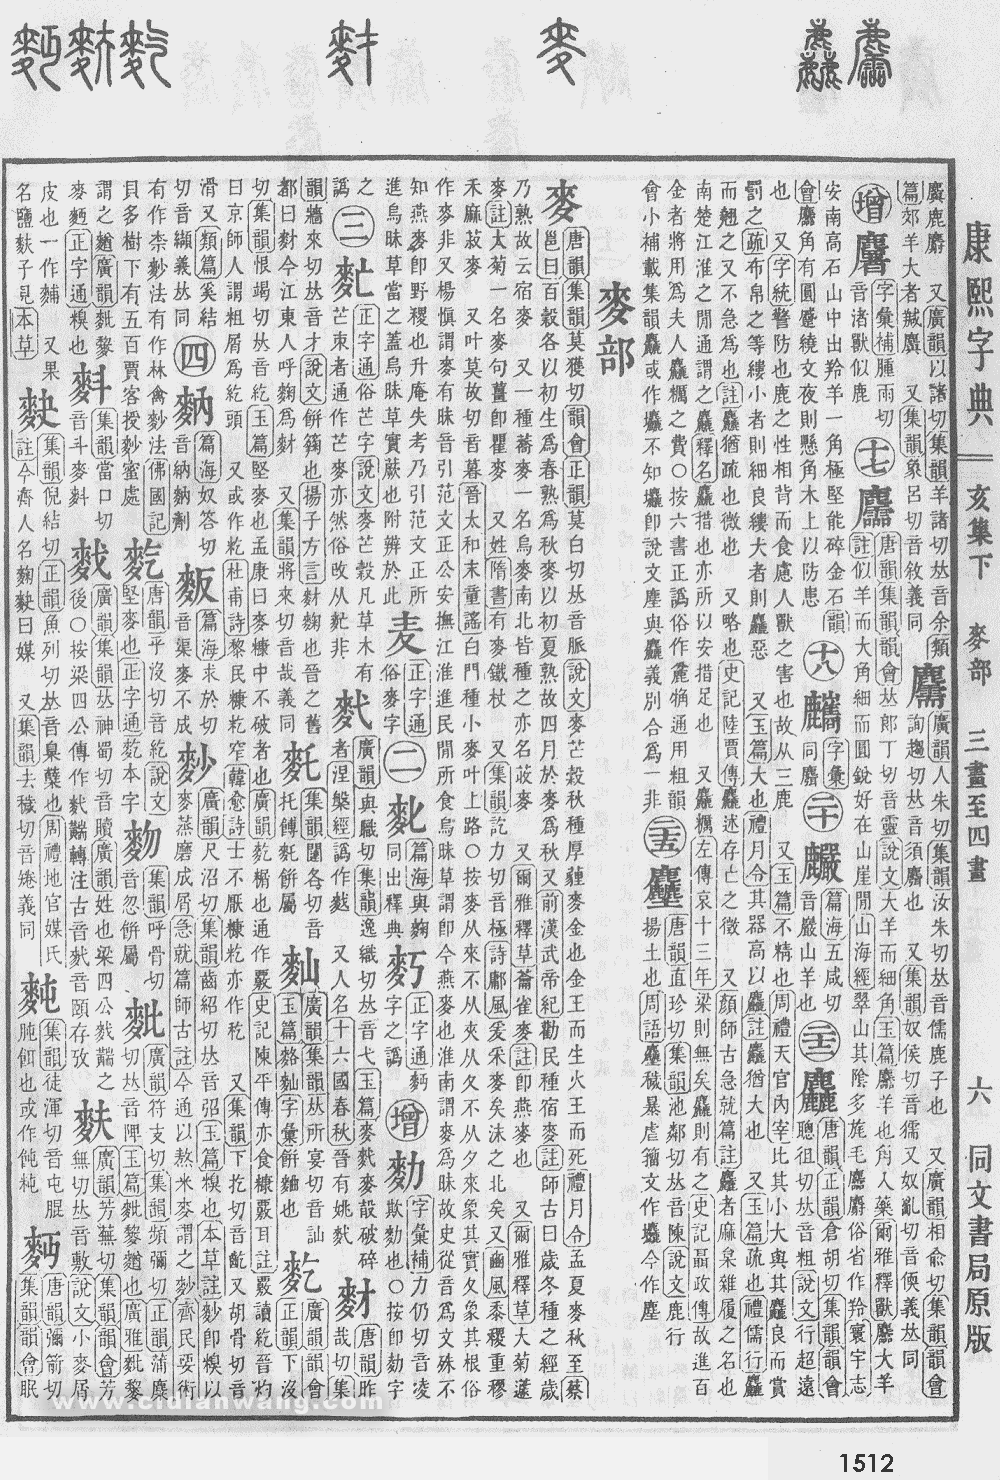 康熙字典
亥集下　麥部　三畫至四畫
六
同文書局原版
麌鹿麝　又廣韻以諸切集韻羊諸切𠀤音余類
篇郊羊大者羬麌　又集韻象呂切音敘義同
廣韻人朱切集韻汝朱切𠀤音儒鹿子也　又廣韻相俞切集韻韻會
詢趨切𠀤音須麛也　又集韻奴侯切音獳又奴亂切音偄義𠀤同
增
字彙補腫雨切
音渚獸似鹿
十七
麢
唐韻集韻韻會𠀤郎丁切音靈說文大羊而細角玉篇麢羊也角入藥爾雅釋獸麢大羊
註似羊而大角細而圓銳好在山崖閒山海經翠山其陰多旄毛麢麝俗省作羚寰宇志
安南高石山中出羚羊一角極堅能碎金石韻
會麢角有圓蹙繞文夜則懸角木上以防患
十八
字彙
同麝
二十
篇海五咸切
音巖山羊也
二十二
麤
唐韻正韻倉胡切集韻韻會
聰徂切𠀤音粗說文行超遠
也　又字統警防也鹿之性相背而食慮人獸之害也故从三鹿　又玉篇不精也周禮天官內宰比其小大與其麤良而賞
罰之疏布帛之等縷小者則細良縷大者則麤惡　又玉篇大也禮月令其器高以麤註麤猶大也　又玉篇疏也禮儒行麤
而翹之又不急為也註麤猶疏也微也　又略也史記陸賈傳麤述存亡之徵　又顏師古急就篇註麤者麻枲雜履之名也
南楚江淮之閒通謂之麤釋名麤措也亦所以安措足也　又麤糲左傳哀十三年梁則無矣麤則有之史記聶政傳故進百
金者將用為夫人麤糲之費○按六書正譌俗作麄觕通用粗韻
會小補載集韻麤或作 不知 卽說文塵與麤義別合為一非
二十五
唐韻直珍切集韻池鄰切𠀤音陳說文鹿行
揚土也周語 穢暴虐籀文作 今作塵
麥部
麥
唐韻集韻莫獲切韻會正韻莫白切𠀤音脈說文麥芒穀秋種厚薶麥金也金王而生火王而死禮月令孟夏麥秋至蔡
邕曰百穀各以初生為春熟為秋麥以初夏熟故四月於麥為秋又前漢武帝紀勸民種宿麥註師古曰歲冬種之經歲
乃熟故云宿麥　又一種蕎麥一名烏麥南北皆種之亦名荍麥　又爾雅釋草蘥雀麥註卽燕麥也　又爾雅釋草大菊蘧
麥註大菊一名麥句薑卽瞿麥　又姓隋書有麥鐵杖　又集韻訖力切音極詩鄘風爰采麥矣沬之北矣又豳風黍稷重穋
禾麻菽麥　又叶莫故切音暮晉太和末童謠白門種小麥叶上路○按麥从來不从夾从夊不从夕來象其實夊象其根俗
作麦非又楊慎謂麥有昧音引范文正公安撫江淮進民閒所食烏昧草謂卽今燕麥也淮南謂麥為昧故史從音為文殊不
知燕麥卽野稷也升庵失考乃引范文正所
進烏昧草當之蓋烏昧草實蕨也附辨於此
麦
正字通
俗麥字
二
篇海與麴
同出釋典
正字通麫
字之譌
增
字彙補力仍切音凌
欺勑也○按卽勑字
之
譌
三
䴏
正字通俗芒字說文麥芒穀凡草木有
芒朿者通作芒麥亦然俗改从麧非
䴬
廣韻與職切集韻逸織切𠀤音弋玉篇麥䴬麥𪍿破碎
者涅槃經譌作 　又人名十六國春秋晉有姚䴬
唐韻昨
哉切集
韻牆來切𠀤音才說文餅𥶶也揚子方言 麴也晉之舊
都曰 今江東人呼麴為 　又集韻將來切音哉義同
集韻闥各切音
托餺飥餅屬
廣韻集韻𠀤所晏切音訕
玉篇 字彙餅麯也
麧
廣韻韻會
正韻下沒
切集韻恨竭切𠀤音紇玉篇堅麥也孟康曰麥糠中不破者也廣韻麧㮩也通作覈史記陳平傳亦食糠覈耳註覈讀紇晉灼
曰京師人謂粗屑為紇頭　又或作籺杜甫詩黎民糠籺窄韓愈詩士不厭糠籺亦作秔　又集韻下扢切音齕又胡骨切音
滑又類篇奚結
切音纈義𠀤同
四
篇海奴答切
音納麪劑
篇海求於切
音渠麥不成
麨
廣韻尺沼切集韻齒紹切𠀤音弨玉篇糗也本草註麨卽糗以
麥蒸磨成屑急就篇師古註今通以熬米麥謂之麨齊民要術
有作柰麨法有作林禽麨法佛國記
貝多樹下有五百賈客授麨蜜處
唐韻乎沒切音紇說文
堅麥也正字通麧本字
集韻呼骨切
音忽餅屬
麰
廣韻符支切集韻頻彌切正韻蒲麋
切𠀤音陴玉篇䴡䴽也廣雅䴡
謂之䴽廣韻 黎
麥麪正字通糗也
集韻當口切
音斗麥
廣韻集韻𠀤神蜀切音贖廣韻姓也梁四公䴰䶒之
後○按梁四公傳作䴰䶒轉注古音䴰音頤存攷
麩
廣韻芳蕪切集韻韻會芳
無切𠀤音敷說文小麥屑
皮也一作䴸　又果
名鹽麩子見本草
集韻倪結切正韻魚列切𠀤音臬糵也周禮地官媒氏
註今齊人名麴䴷曰媒　又集韻去穢切音㙯義同
集韻徒渾切音屯腒
肫餌也或作飩忳
麪
唐韻彌箭切
集韻韻會眠
1512
www.cidianwang.com